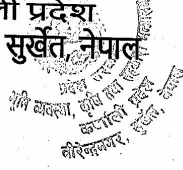 ी प्रदेश
सुर्खेत, नेपाल
प्रदेश सरकार
भूमि व्यवस्था, कृषि तथा सहकारी
कर्णाली प्रदेश
वीरेन्द्रनगर, सुर्खेत, नेपाल